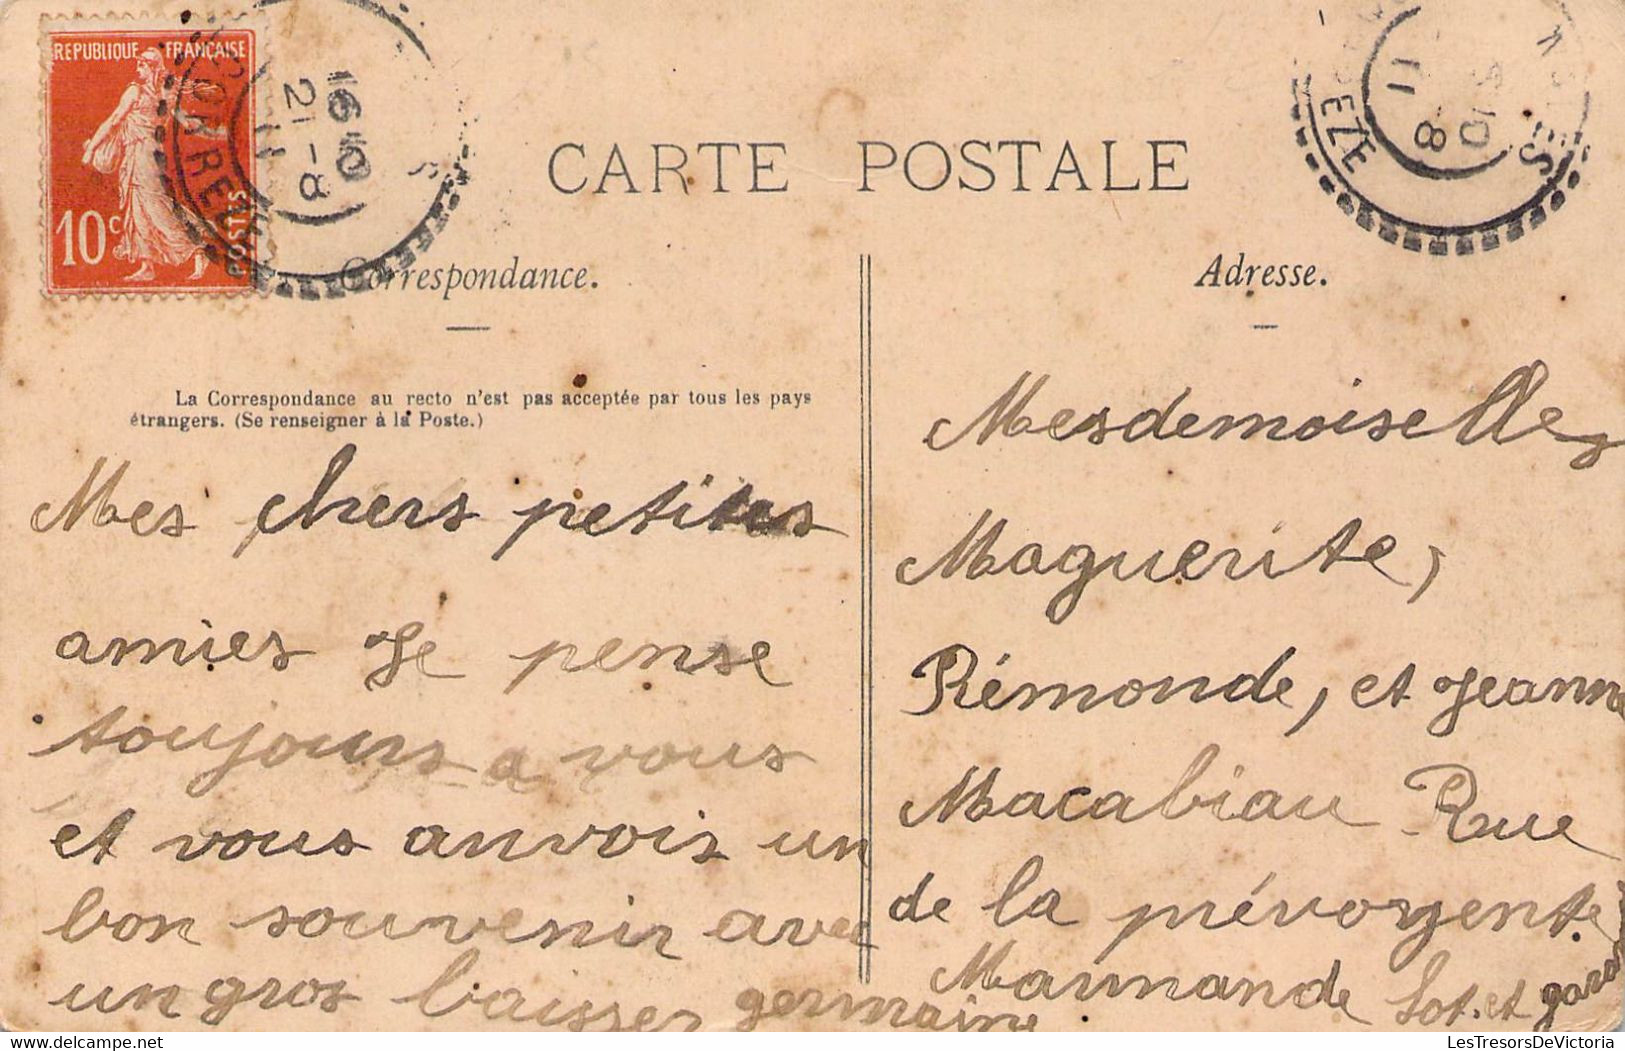 REPUBLIQUE FRANÇAISE
10c
POSTES
16 10
21-8
11
CORREZE
EZE
10
-8
11
CARTE POSTALE
Correspondance.
La Correspondance au recto n'est pas acceptée par tous les pays
étrangers. (Se renseigner à la Poste.)
Mes chers petites
amies Je pense
toujours a vous
et vous anvois un
bon souvenir avec
un gros baisser germaine
Adresse.
Mesdemoiselles
Maguerite,
Rémonde, et Jeanne
Macabiau Rue
de la prévoyente
Marmande Lot. et garon
LesTresorsDeVictoria